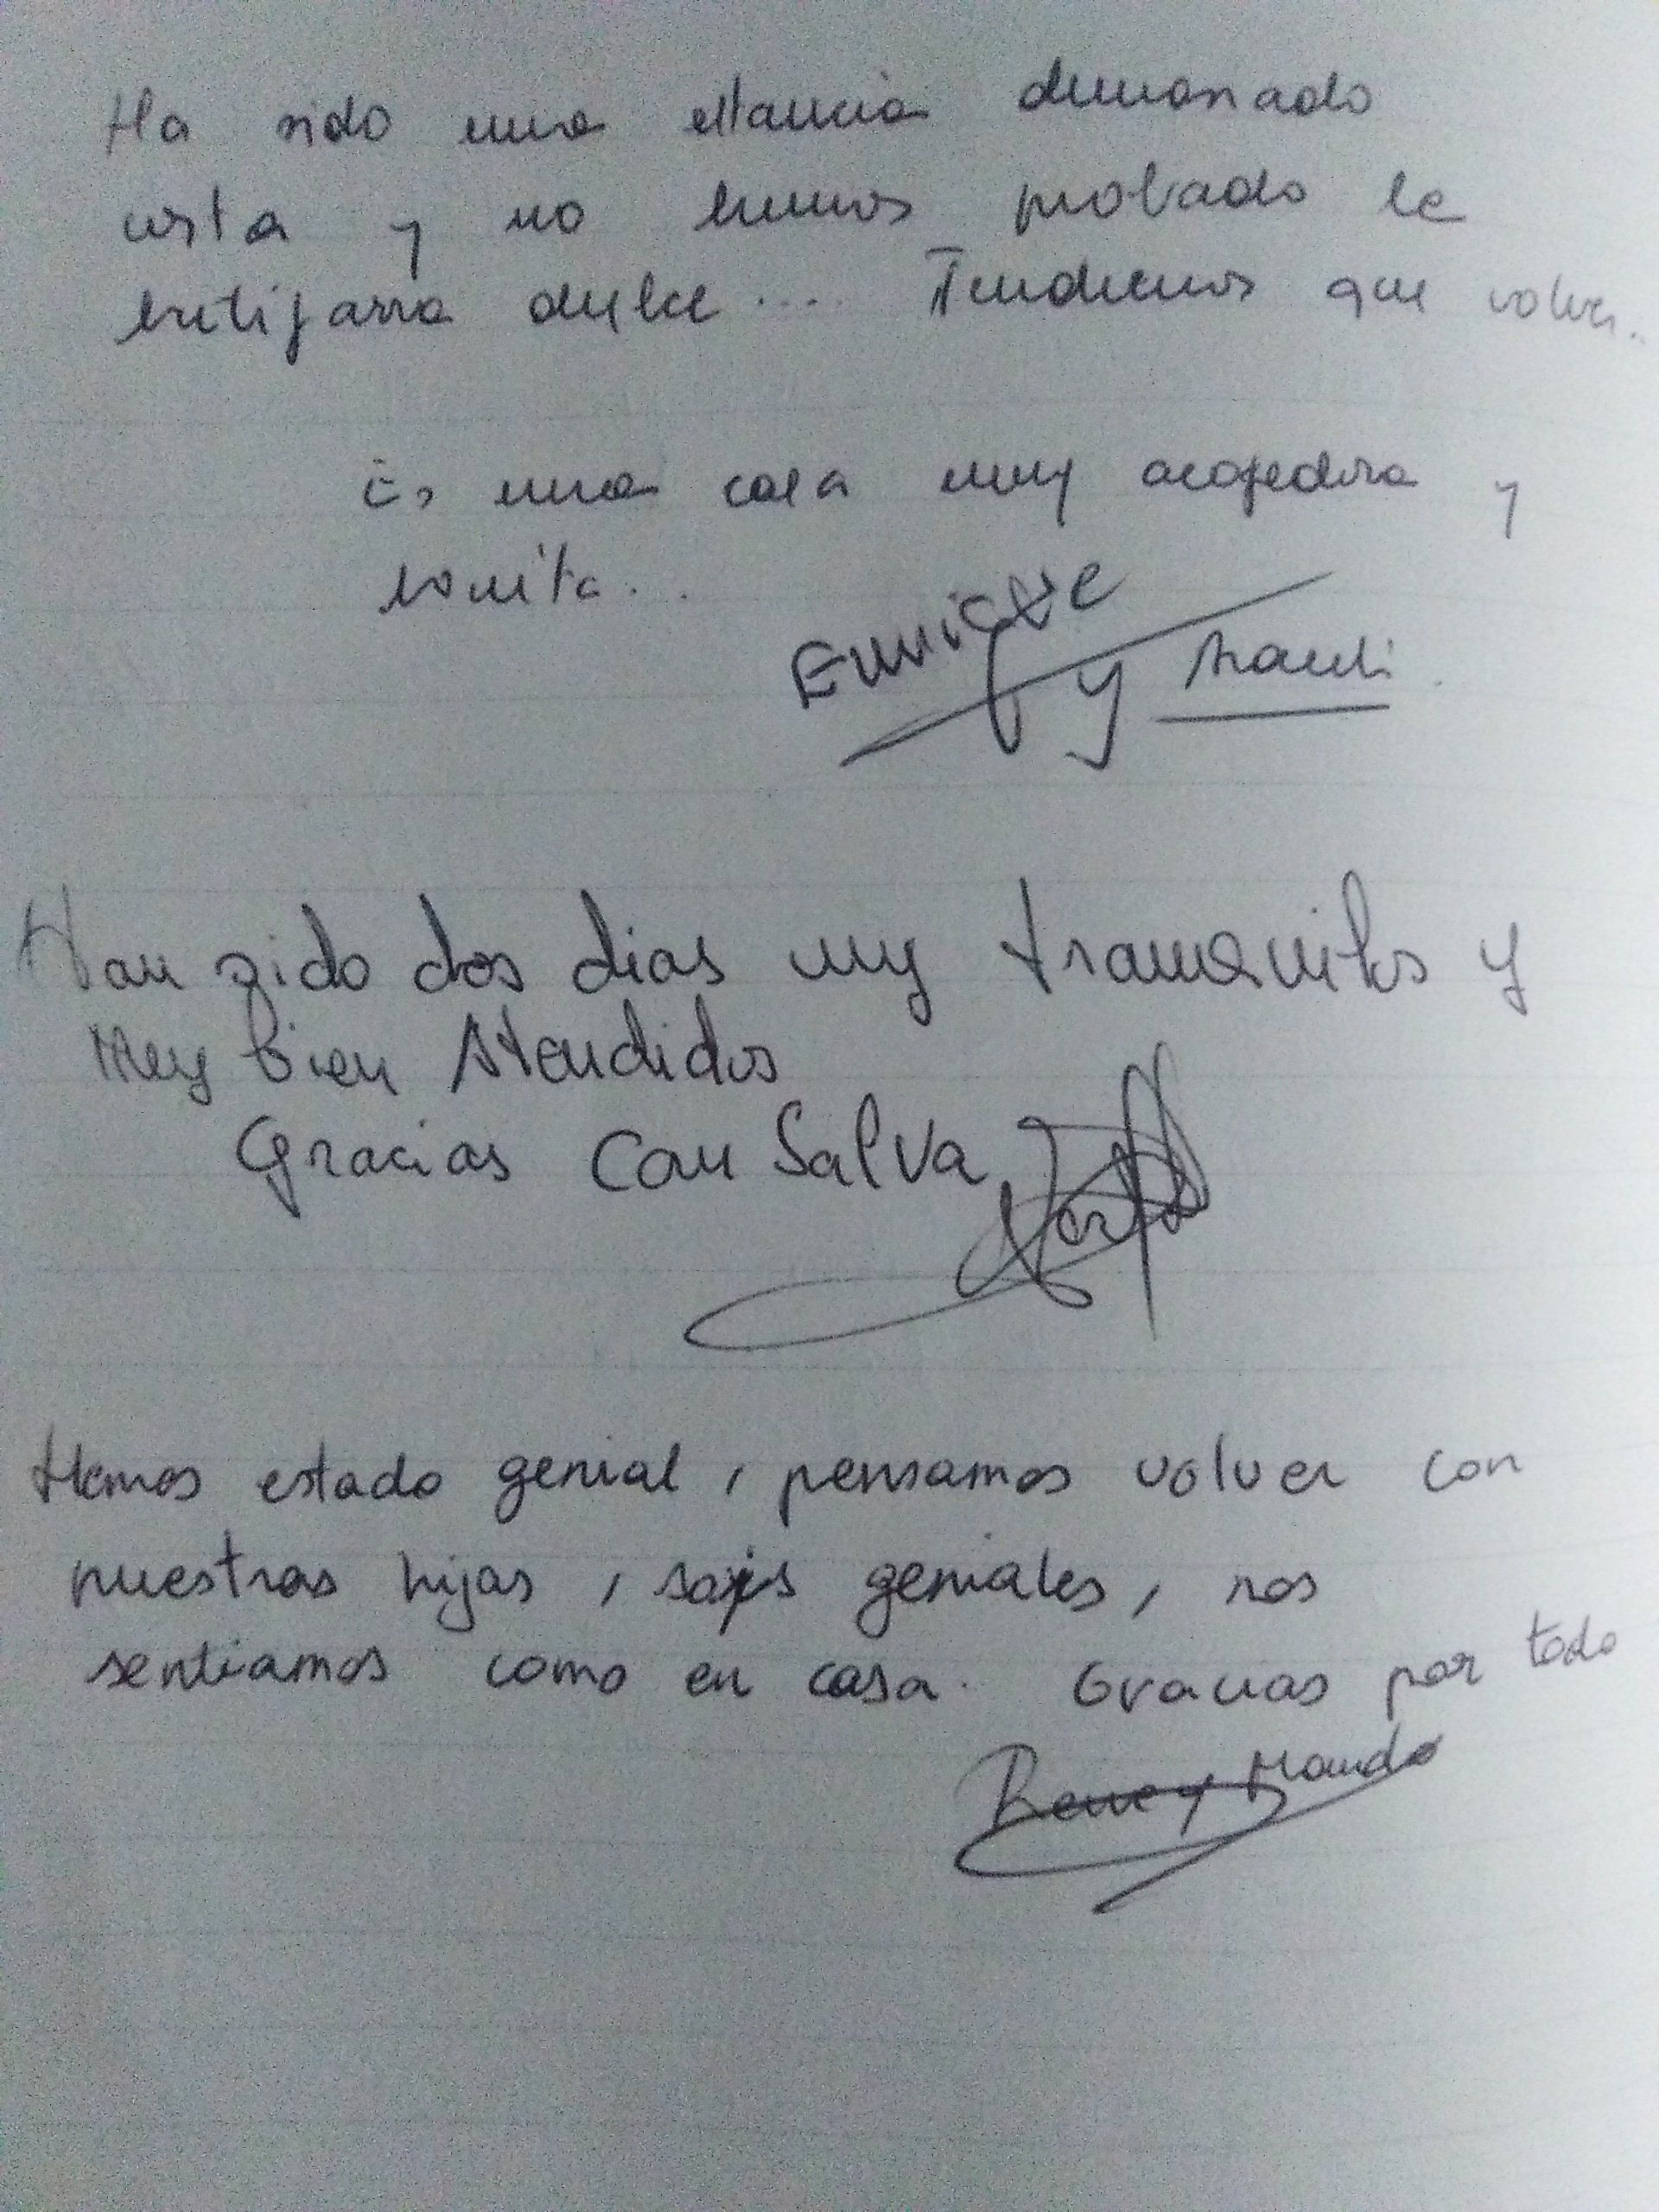 Ha sido una estancia demasiado
corta y no hemos probado la
butifarra dulce.... Tendremos que volver..
Es una casa muy acogedora y
bonita...
Enrique y Araceli.
Han sido dos dias muy tranquilos y
Muy bien Atendidos
Gracias Can Salva
Hemos estado genial, pensamos volver con
nuestras hijas, sois geniales, nos
sentiamos como en casa. Gracias por todo
Rene y